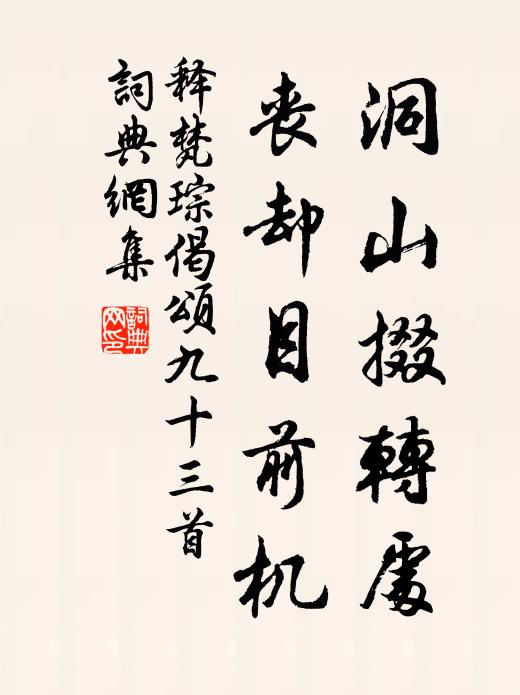 洞山掇轉處
丧却目前机
释梵琮偈頌九十三首
詞典網集
詞典網印